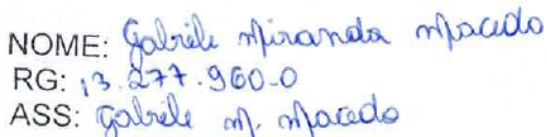 NOME: Gabriele Miranda Macedo
RG: 13.277.960-0
ASS: Gabriele M. Macedo